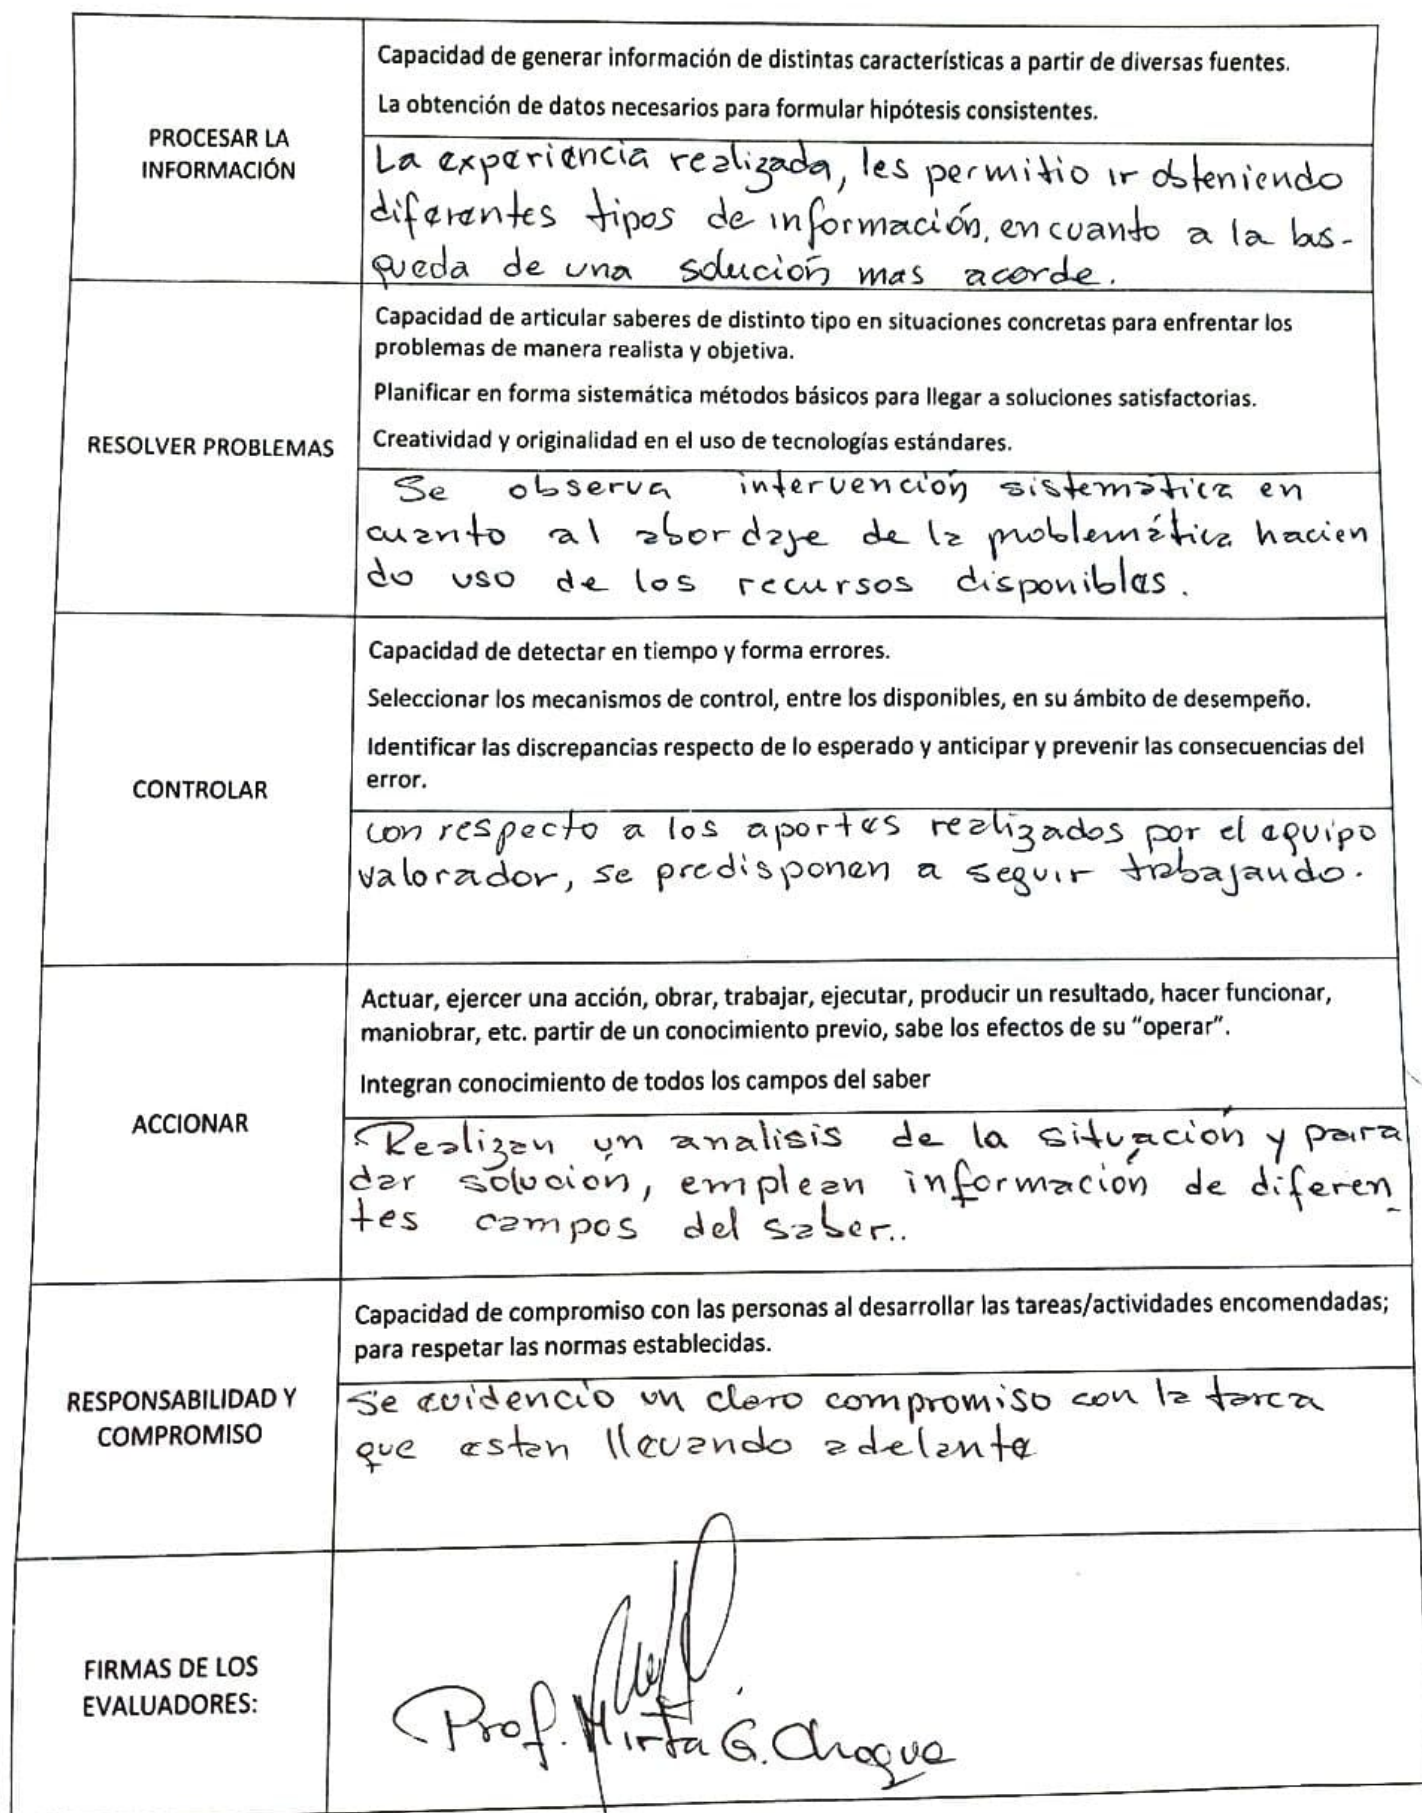 Capacidad de generar información de distintas características a partir de diversas fuentes.
La obtención de datos necesarios para formular hipótesis consistentes.
PROCESAR LA
INFORMACIÓN
La experiencia realizada, les permitio ir obteniendo
diferentes tipos de información, en cuanto a la bus-
queda de una solución mas acorde.
Capacidad de articular saberes de distinto tipo en situaciones concretas para enfrentar los
problemas de manera realista y objetiva.
Planificar en forma sistemática métodos básicos para llegar a soluciones satisfactorias.
Creatividad y originalidad en el uso de tecnologías estándares.
RESOLVER PROBLEMAS
Se observa intervención sistemática en
cuanto al abordaje de la problemática hacien
do uso de los recursos disponibles.
Capacidad de detectar en tiempo y forma errores.
Seleccionar los mecanismos de control, entre los disponibles, en su ámbito de desempeño.
Identificar las discrepancias respecto de lo esperado y anticipar y prevenir las consecuencias del
error.
CONTROLAR
con respecto a los aportes realizados por el equipo
valorador, se predisponen a seguir trabajando.
Actuar, ejercer una acción, obrar, trabajar, ejecutar, producir un resultado, hacer funcionar,
maniobrar, etc. partir de un conocimiento previo, sabe los efectos de su “operar”.
Integran conocimiento de todos los campos del saber
ACCIONAR
Realizan un analisis de la situación y para
dar solución, emplean información de diferen_
tes campos del saber..
Capacidad de compromiso con las personas al desarrollar las tareas/actividades encomendadas;
para respetar las normas establecidas.
RESPONSABILIDAD Y
COMPROMISO
Se evidencio un claro compromiso con la tarea
que estan llevando adelante
FIRMAS DE LOS
EVALUADORES:
Prof. Mirta G. Choque